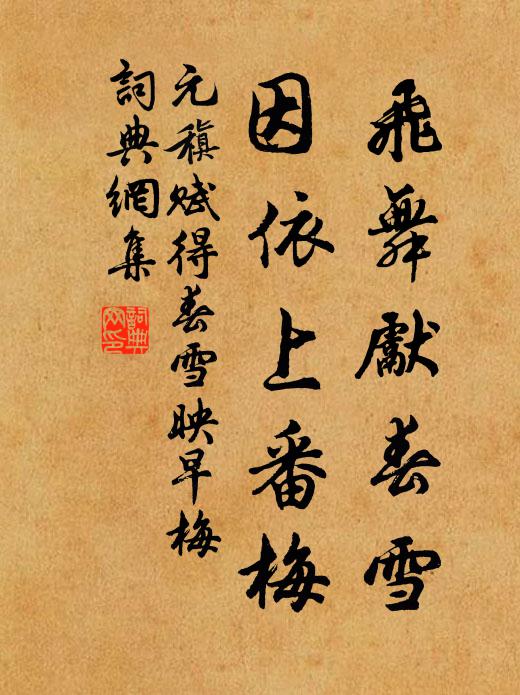 飛舞獻春雪
因依上番梅
元稹賦得春雪映早梅
詞典網集
詞典
网印